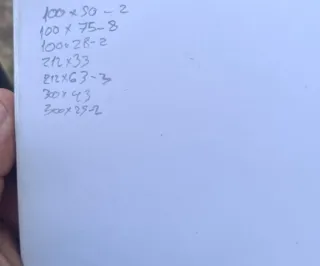 100 × 50 - 2
100 × 75-8
100×28-2
212×33
212×63-3
300×43
300×25-2